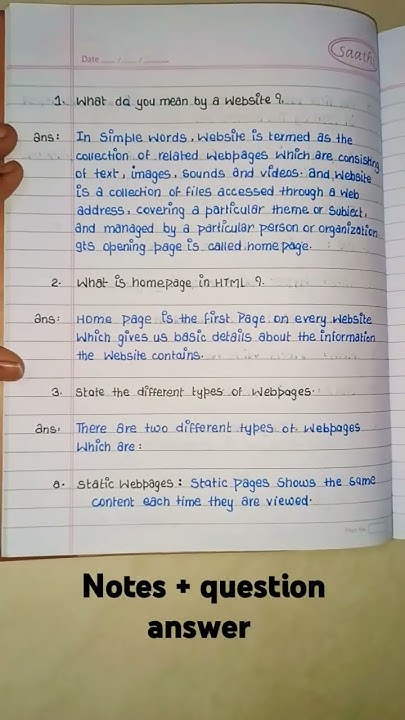 saathi
Date ___/___/___
1. What do you mean by a Website ?.
ans: In simple words, Website is termed as the
collection of related webpages which are consisting
of text, images, sounds and videos. and Website
is a collection of files accessed through a web
address, covering a particular theme or subject,
and managed by a particular person or organization
gts opening page is called home page.
2. What is homepage in HTML ?.
ans: Home page is the first page on every website
Which gives us basic details about the information
the website contains.
3. State the different types of Webpages.
ans: There are two different types of Webpages
Which are :
a. Static Webpages : Static pages shows the same
content each time they are viewed.
Page No.
Notes + question
answer